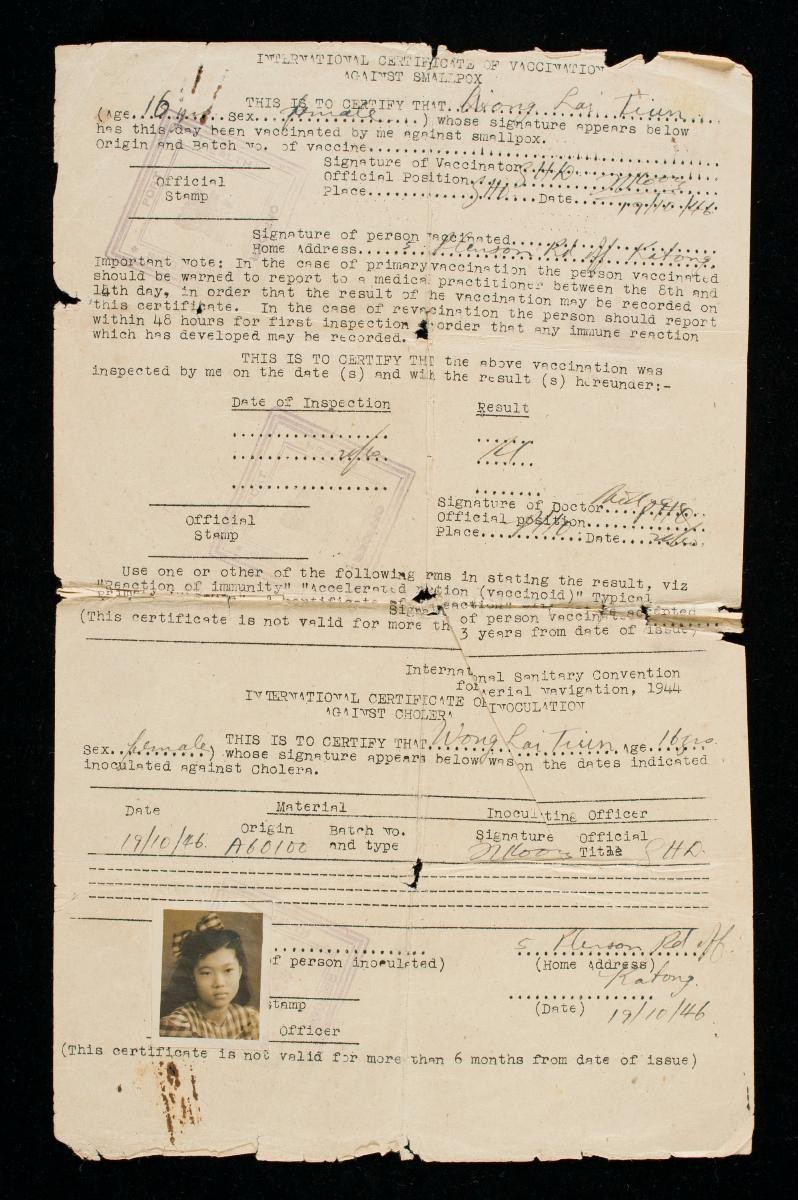 INTERNATIONAL CERTIFICATE OF VACCINATION
AGAINST SMALLPOX
THIS IS TO CERTIFY THAT Wong Lai Tiun
(Age 16 yrs Sex female) whose signature appears below
has this day been vaccinated by me against smallpox.
Origin and Batch no. of vaccine
Signature of Vaccinator
Official Position SHD
Place Date 19/10/46
Official
Stamp
Signature of person vaccinated
Home Address 5 Rd off Katong
Important Note: In the case of primary vaccination the person vaccinated
should be warned to report to a medical practitioner between the 8th and
14th day, in order that the result of he vaccination may be recorded on
this certificate. In the case of revaccination the person should report
within 48 hours for first inspection order that any immune reaction
which has developed may be recorded.
THIS IS TO CERTIFY TH the above vaccination was
inspected by me on the date (s) and with the result (s) hereunder:-
Date of Inspection Result
Official
Stamp
Signature of Doctor
Official position
Place Date
Use one or other of the following rms in stating the result, viz
"Reaction of immunity" "Accelerated tion (vaccinoid)" Typical
of person
(This certificate is not valid for more th 3 years from date of issue)
International Sanitary Convention
for Aerial Navigation, 1944
INTERNATIONAL CERTIFICATE OF INOCULATION
AGAINST CHOLERA
THIS IS TO CERTIFY THAT Wong Lai Tiun Age 16 yrs
Sex female) whose signature appears below was on the dates indicated
inoculated against Cholera.
Date Material Inoculating Officer
Origin Batch no. and type Signature Official Title
19/10/46 A60100 SHD
f person inoculated)
5 Rd off
(Home Address)
Katong
stamp
(Date) 19/10/46
Officer
(This certificate is not valid for more than 6 months from date of issue)